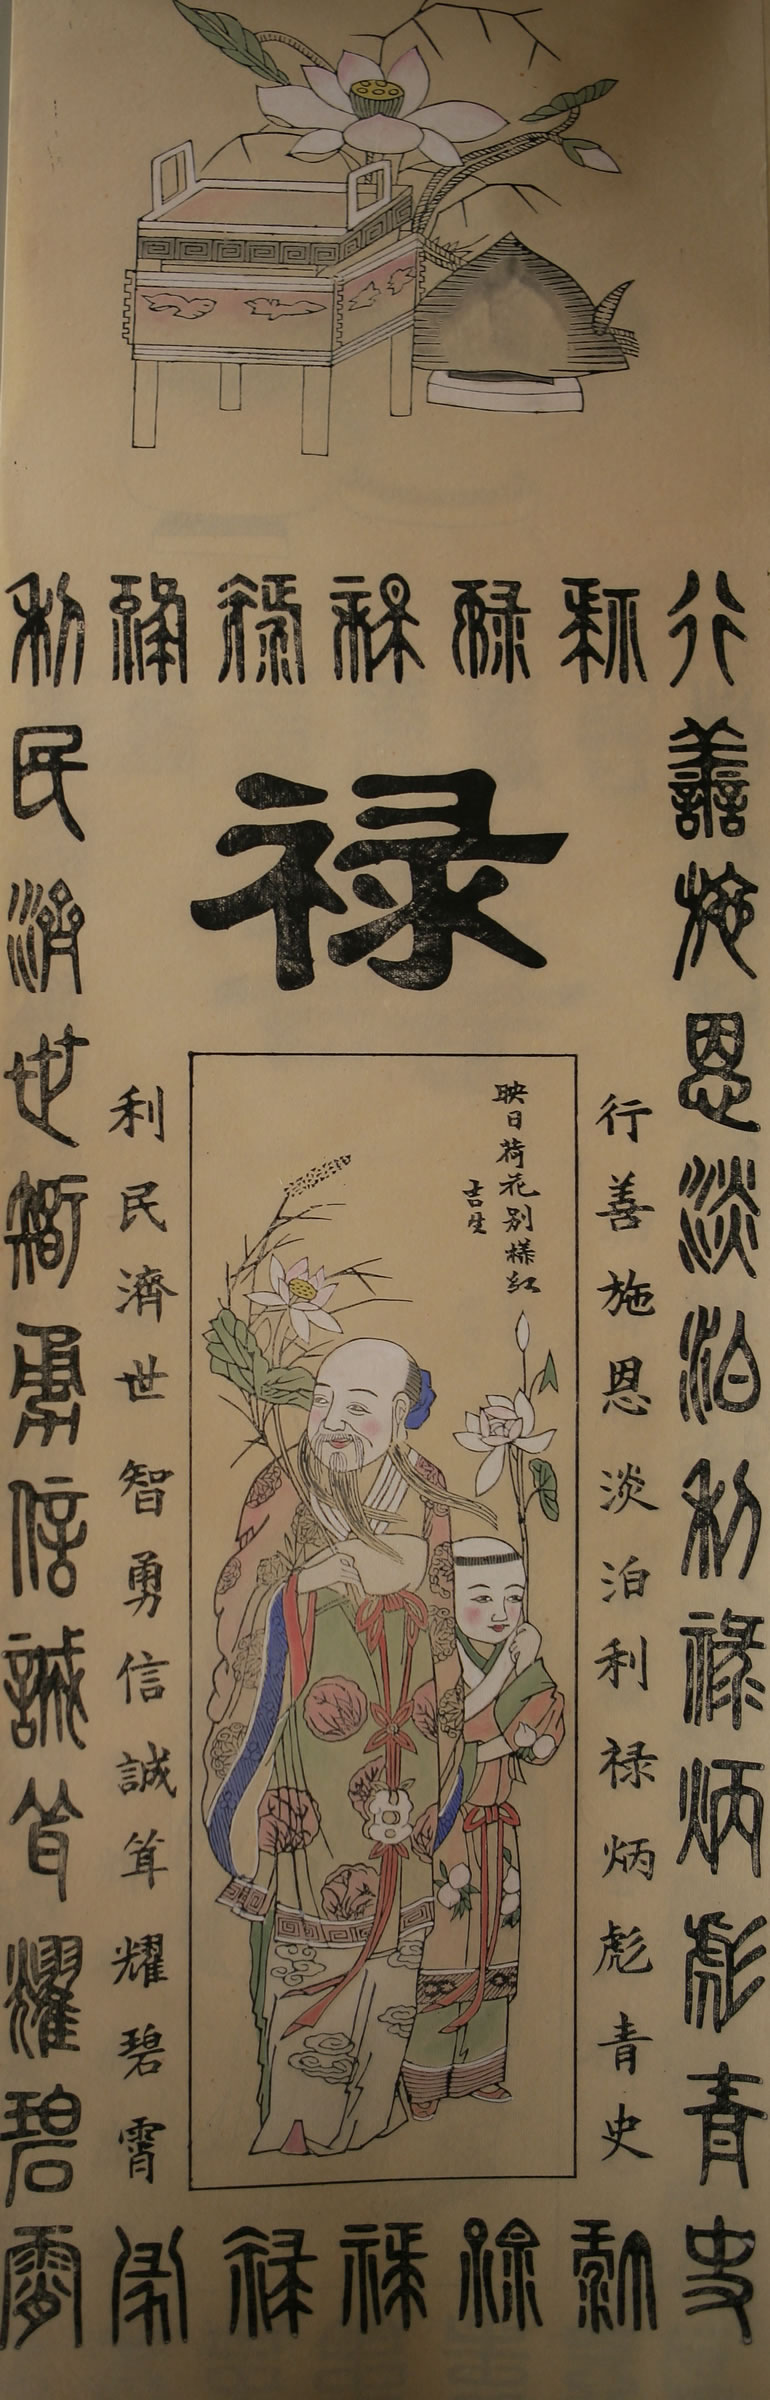 禄
行善施恩淡泊利禄炳彪青史
行善施恩淡泊利禄炳彪青史
映日荷花别樣红
吉生
利民濟世智勇信誠耸耀碧霄
利民濟世智勇信誠耸耀碧霄